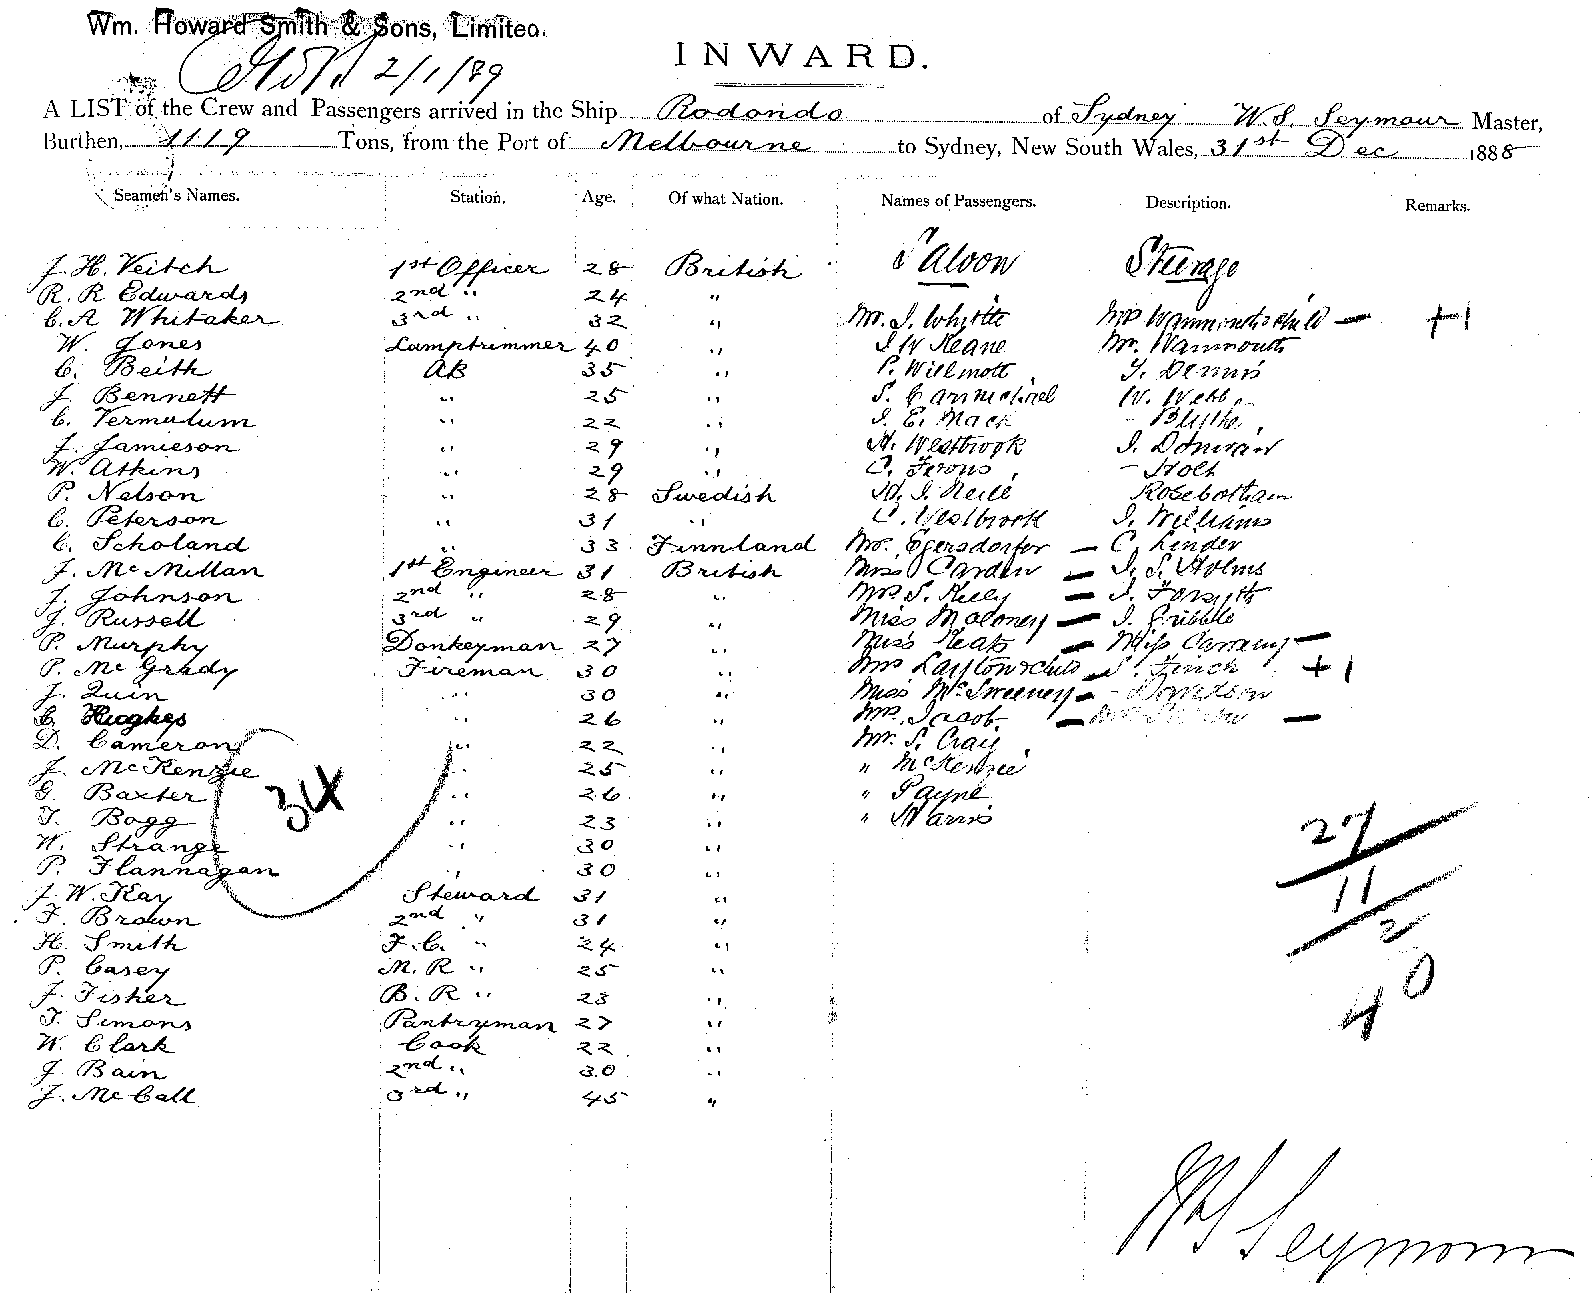 Wm. Howard Smith & Sons, Limited.
2/1/89
INWARD.
A LIST of the Crew and Passengers arrived in the Ship Rodondo of Sydney W.S. Seymour Master,
Burthen, 1119 Tons, from the Port of Melbourne to Sydney, New South Wales, 31st Dec 1888
Seamen's Names. Station. Age. Of what Nation. Names of Passengers. Description. Remarks.
Saloon Steerage
J. H. Veitch 1st Officer 28 British
R. R Edwards 2nd " 24 "
C. A Whitaker 3rd " 32 " Mr. J. Whyttle Mrs +1
W. Jones Lamptrimmer 40 " J W Keane Mr.
C. Beith AB 35 " P. Willmott T. Dennis
J. Bennett " 25 " S. Carmichael W. Webb
C. Vermulum " 22 " J. E. Mack - Blythe
J. Jamieson " 29 " H. Westbrook J. Donovan
W. Atkins " 29 " C. Ferons - Holt
P. Nelson " 28 Swedish W. J. Neill Rosebotham
C. Peterson " 31 " C. Westbrook J. Williams
C. Scholand " 33 Finnland Mrs. Egersdorfer - C. Linder
J. McMillan 1st Engineer 31 British Miss Carden - J. S. Holms
J. Johnson 2nd " 28 " Mrs S. Kelly - J. Forsyth
J. Russell 3rd " 29 " Miss Maloney - J. Gribble
P. Murphy Donkeyman 27 " Miss Keats - Miss -
P. McGrady Fireman 30 " Mrs Layton & child - S. Finch +1
J. Quin " 30 " Miss McSweeney - - Davidson
C. Hughes " 26 " Mrs. Jacob - -
D. Cameron " 22 " Mr. S. Craig
J. McKenzie " 25 " " McKenzie
G. Baxter " 26 " " Payne
T. Bogg " 23 " " Harris
34
W. Strange " 30 "
P. Flannagan " 30 "
J. W. Kay Steward 31 "
F. Brown 2nd " 31 "
H. Smith F. C. " 24 "
P. Casey M. R " 25 "
J. Fisher B. R " 23 "
T. Simons Pantryman 27 "
W. Clark Cook 22 "
J. Bain 2nd " 30 "
J. McCall 3rd " 45 "
27
11
2
40
W S Seymour